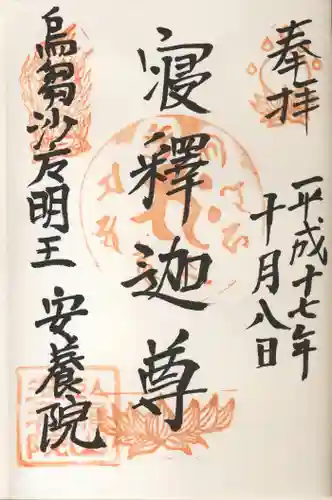 奉拝
平成十七年
十月八日
寝釋迦尊
烏芻沙广明王 安養院